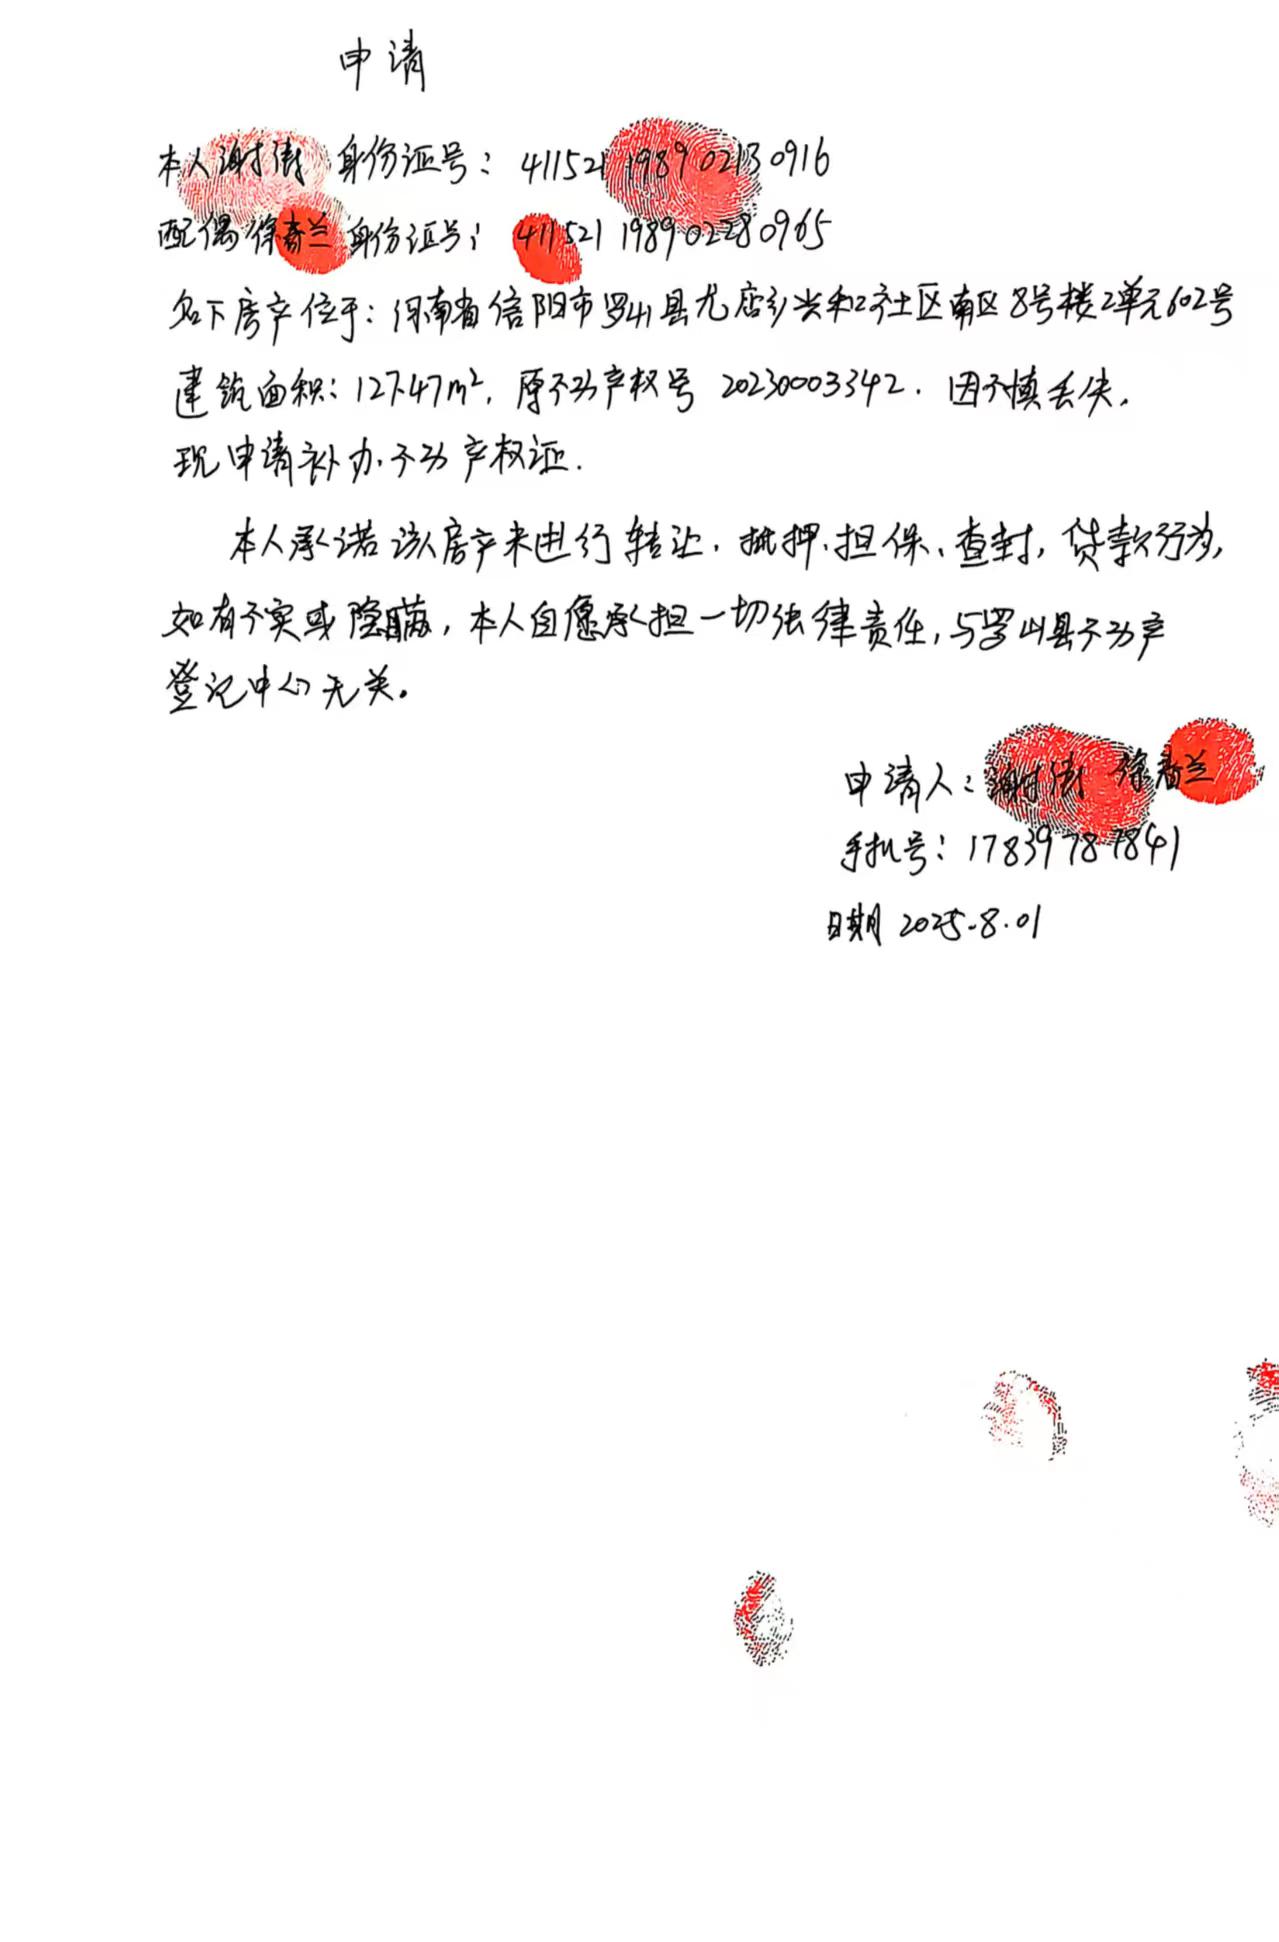 申请
本人谢街 身份证号：411521198902130916
配偶徐春兰身份证号：411521198902280965
名下房产位于：河南省信阳市罗山县尤店乡兴和社区南区8号楼2单元602号
建筑面积：127.47m²，原不动产权号 20230003342．因不慎丢失，
现申请补办不动产权证．
本人承诺该房产未进行转让、抵押、担保、查封，贷款行为，
如有不实或隐瞒，本人自愿承担一切法律责任，与罗山县不动产
登记中心无关。
申请人：谢街 徐春兰
手机号：17839787841
日期 2025.8.01